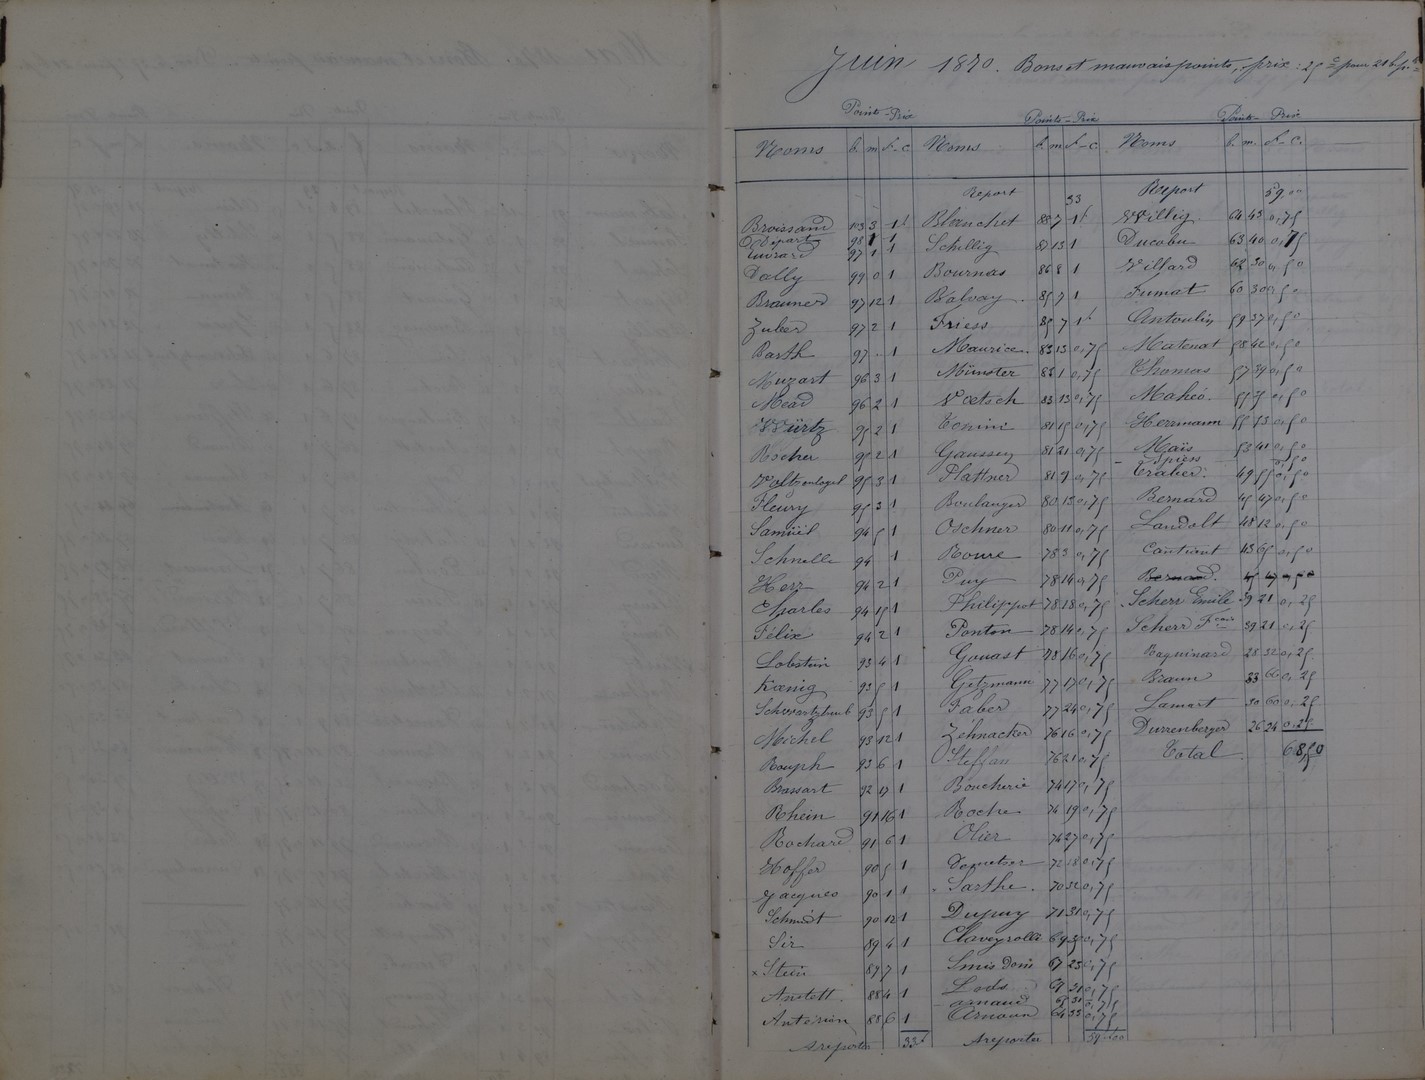 Juin 1870. Bons et mauvais points, prix : 25 c pour 21 b. pts
Points - Prix Points - Prix Points - Prix
Noms b. m f - c Noms b. m f - c Noms b. m. f - c.
Report 33 Report 59,00
Broissand 103 3 1f Blanchet 88 7 1f Willig. 64 43 0,75
Départ 98 1 1 Schillig 87 13 1 Ducobu 63 40 0,75
Euvrard 97 1 1
Dolly 99 0 1 Bournas 86 8 1 Villard 62 30 0,50
Brauner 97 12 1 Valvay. 85 7 1 Fumat 60 30 0,50
Zuber 97 2 1 Friess 85 7 1f Antoulin 59 37 0,50
Barth 97 . 1 Maurice. 83 13 0,75 Matenat 58 42 0,50
Muzart 96 3 1 Münster 83 1 0,75 Thomas 57 39 0,50
Mead 96 2 1 Voetsch 83 13 0,75 Mahéo. 55 35 0,50
Würtz 95 2 1 Tonini 81 15 0,75 Herrmann 55 73 0,50
Rocher 95 2 1 Gaussen 81 21 0,75 Maïs 53 41 0,50
Spiess
Voltzenlogel 95 3 1 Plattner 81 9 0,75 Traber. 49 55 0,50
Fleury 95 3 1 Boulanger 80 13 0,75 Bernard 45 47 0,50
Samüël 94 5 1 Oschner 80 11 0,75 Landolt 48 12 0,50
Schnelle 94 1 Roure 78 3 0,75 43 65 0,50
Herz 94 2 1 Puy 78 14 0,75 Bernard. 45 47 0,50
Charles 94 15 1 Philippot 78 18 0,75 Scherr Emile 39 21 0,25
Félix 94 2 1 Ponton 78 14 0,75 Scherr Fçois 39 21 0,25
Lobstein 93 4 1 Gouast 78 16 0,75 Raquinard 28 32 0,25
Kœnig 93 5 1 Getzmann 77 17 0,75 Braun 33 66 0,25
93 5 1 Faber 77 24 0,75 Lamart 30 60 0,25
Michel 93 12 1 Zehnacker 76 16 0,75 Durrenberger 26 24 0,25
Rouph 93 6 1 Steffan 76 21 0,75 Total. 68,50
Brassart 92 17 1 Boucherie 74 17 0,75
Rhein 91 16 1 Roche 74 19 0,75
Rochard 91 6 1 Olier 74 27 0,75
Hoffer 90 5 1 72 18 0,75
Jacques 90 1 1 Sarthe. 70 32 0,75
Schmidt 90 12 1 Dupuy 71 31 0,75
Sir 89 4 1 Claveyrolle 69 30 0,75
x Stein 89 7 1 67 23 0,75
Anstett. 88 4 1 Lods 67 31 0,75
- Arnaud
Antérion 88 6 1 Arnoun 64 33 0,75
A reporter 33f A reporter 59f00